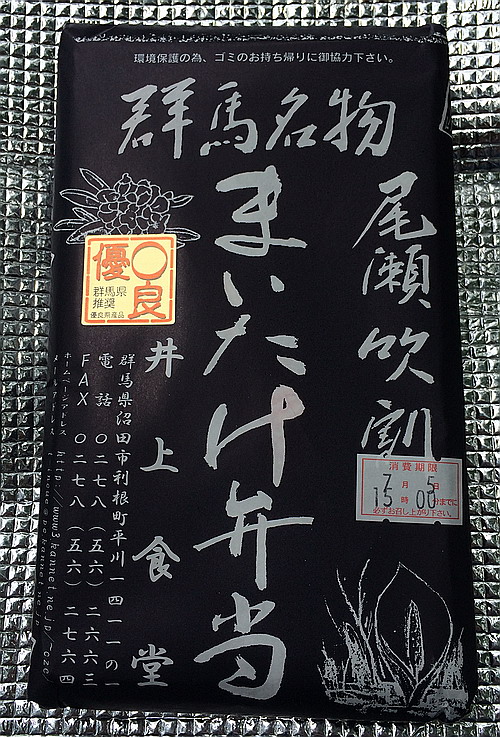 環境保護の為、ゴミのお持ち帰りに御協力下さい。
群馬名物
尾瀬吹割
まいたけ弁当
優良
群馬県
推奨
優良県産品
消費期限
7月5日
15時00分までに
必ずお召し上がり下さい。
井上食堂
群馬県沼田市利根町平川一四一一の一
電話 〇二七八(五六)二六六三
FAX 〇二七八(五六)二七六四
ホームページアドレス